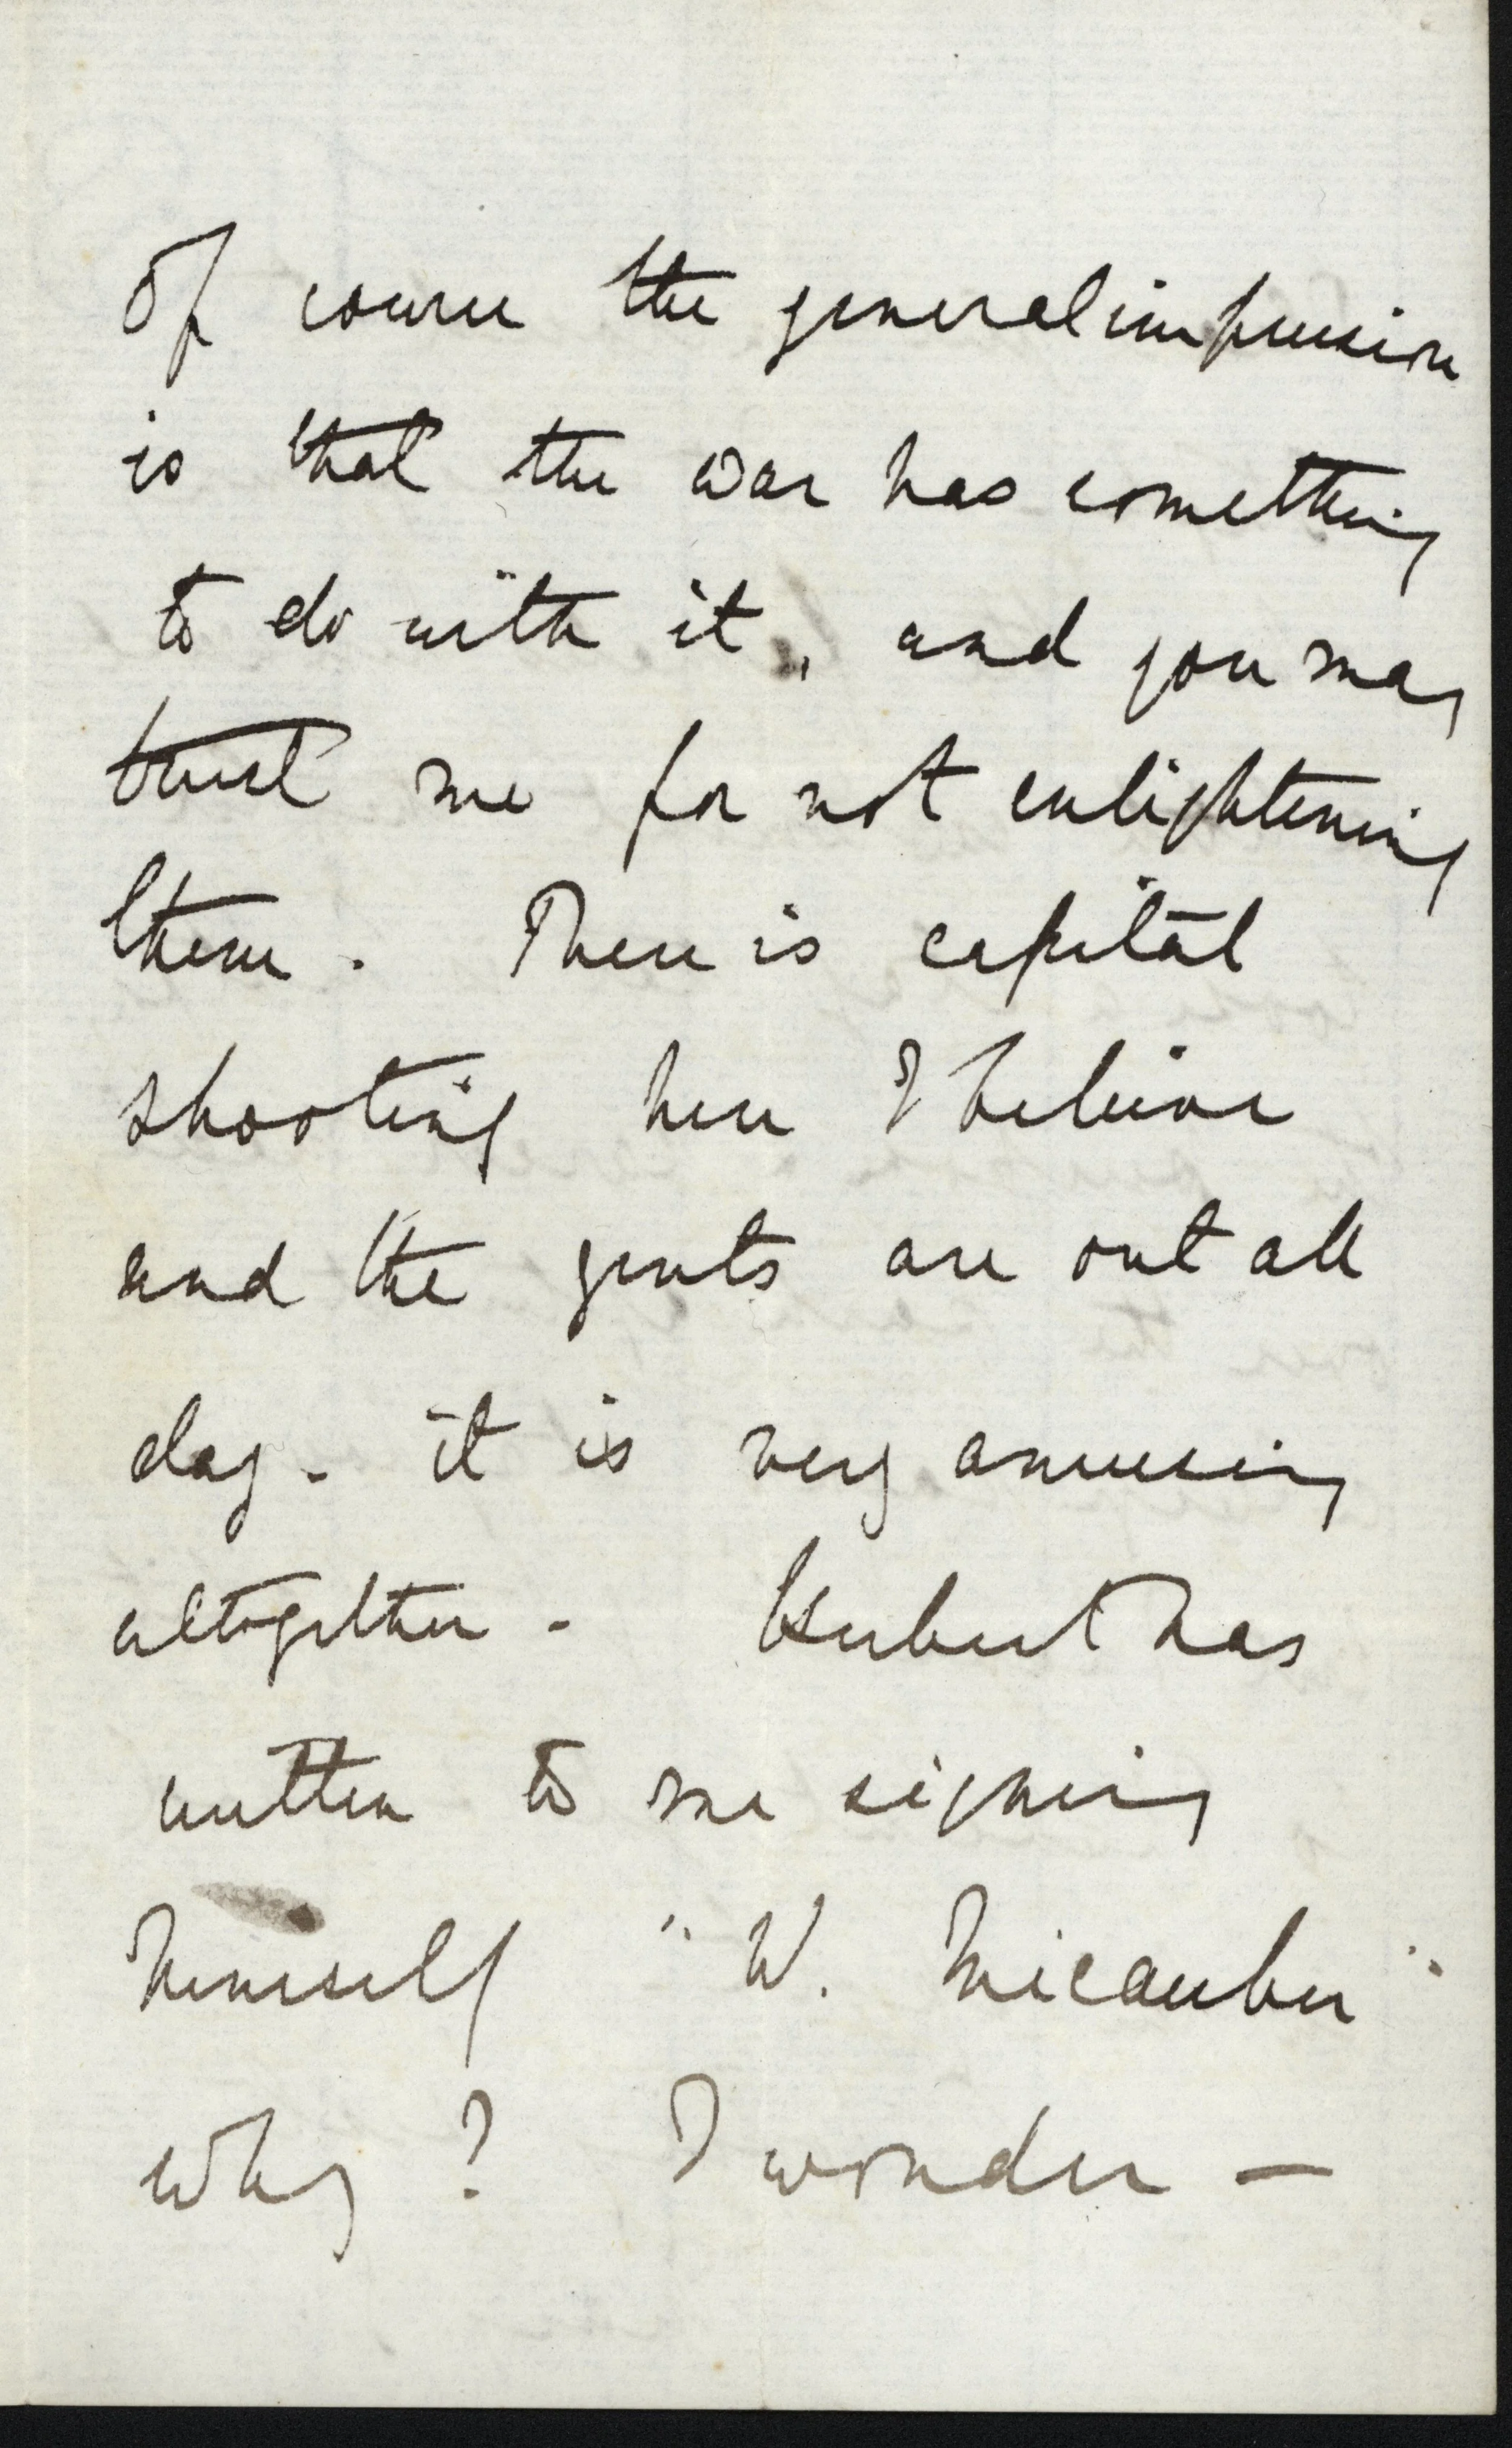 Of course the general impression
is that the war has something
to do with it, and you may
trust me for not enlightening
them. There is capital
shooting here I believe
and the gents are out all
day. it is very amusing
altogether. Hubert has
written to me signing
himself "W. Micawber"
why? I wonder —